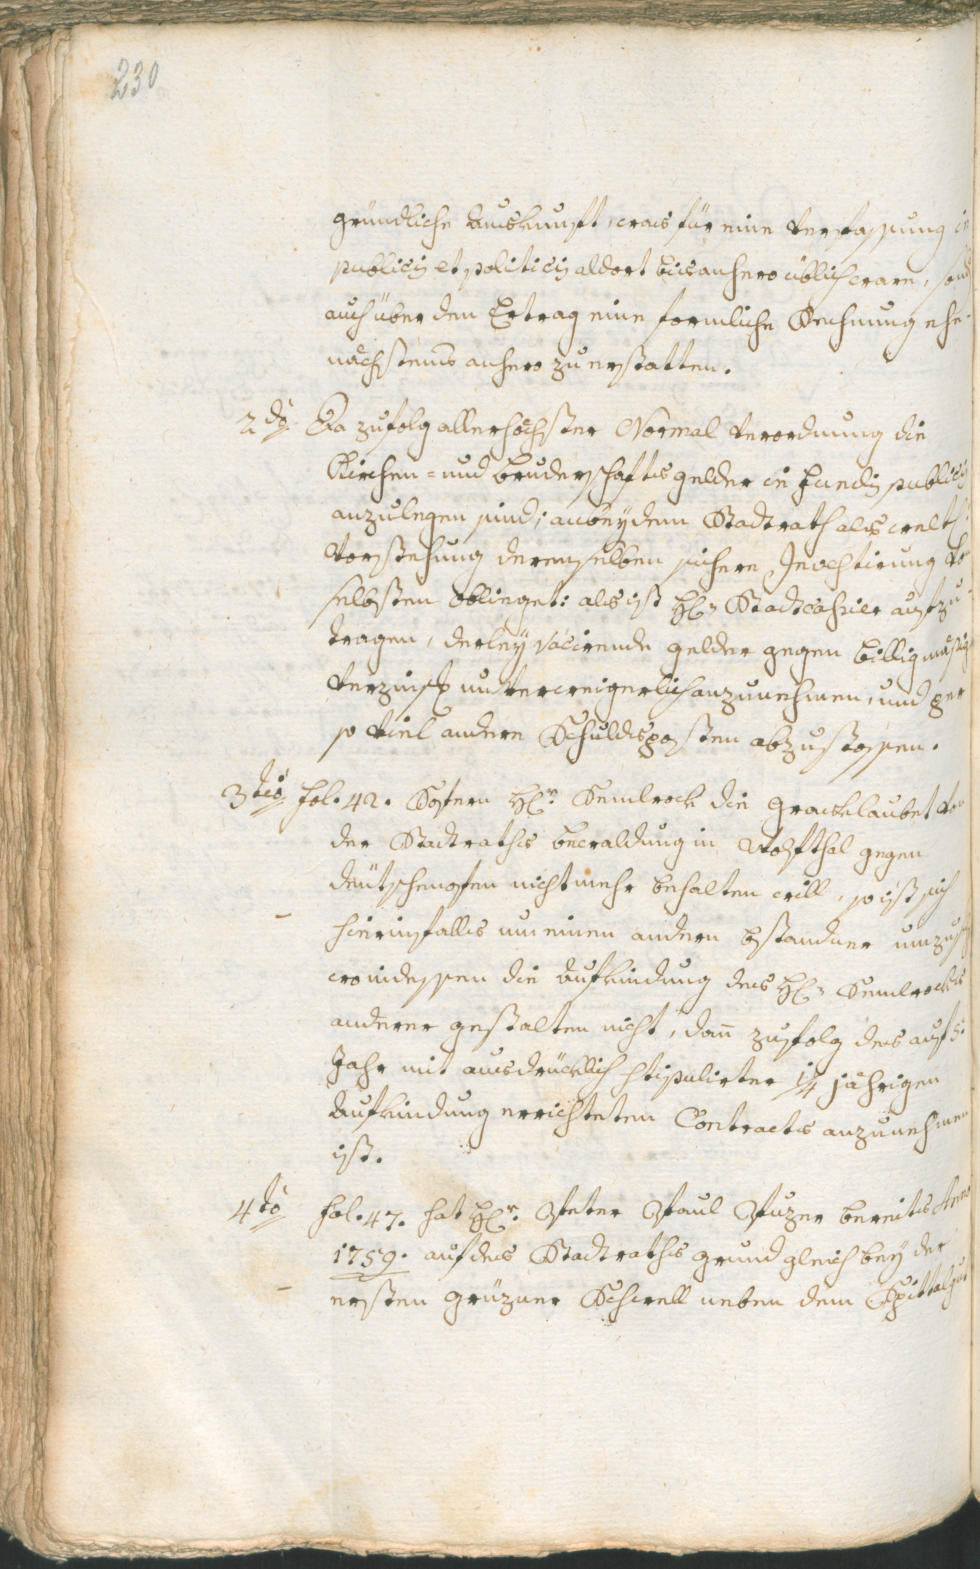 230
gründliche Auskunft, was für eine Verfassung in
publicis et politicis aldort bis anhero üblich ware, sond
auch über den Ertrag eine formliche Rechnung ehe-
nächstens anhero zu erstatten.
2do Da zufolg allerhöchster Normal Verordnung die
Kirchen- und bruderschafts gelder in fundis publicis
anzulegen sind; anbey dem Stadtrath als welt
Vorstehung derenselben sichere Investirung
selbsten obliegt: als ist H: Stadtcassier aufzu-
tragen, derley vacirende gelder gegen billigmäßig
Verzinß unverweigerlich anzunehmen, und
so viel andere Schuldsposten abzustossen.
3tio fol. 42. Sofern Hr. Semlrock die graßklaubet
der Stadtraths bewaldung in Wolfsthal gegen
Deütschenofen nicht mehr behalten will, so ist sich
hierinfalls um einen andern bstandner umzu
wo indessen die Aufkündung des H: Semlrocks
anderer gestalten nicht, dann zufolg des auf 5
Jahr mit ausdrücklich stipulirter 1/4 jährigen
Aufkündung errichteten Contracts anzunehmen
ist.
4to fol. 47. hat Hr. Peter Paul Puzer bereits Anno
1759. auf des Stadtraths grund gleich bey der
ersten grüzner Schwell neben dem Spittalgut